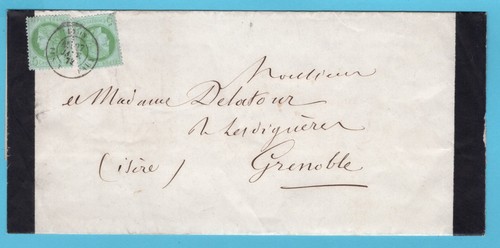 Monsieur
et Madame Delatour
r. Lesdiguières
(isère)
Grenoble